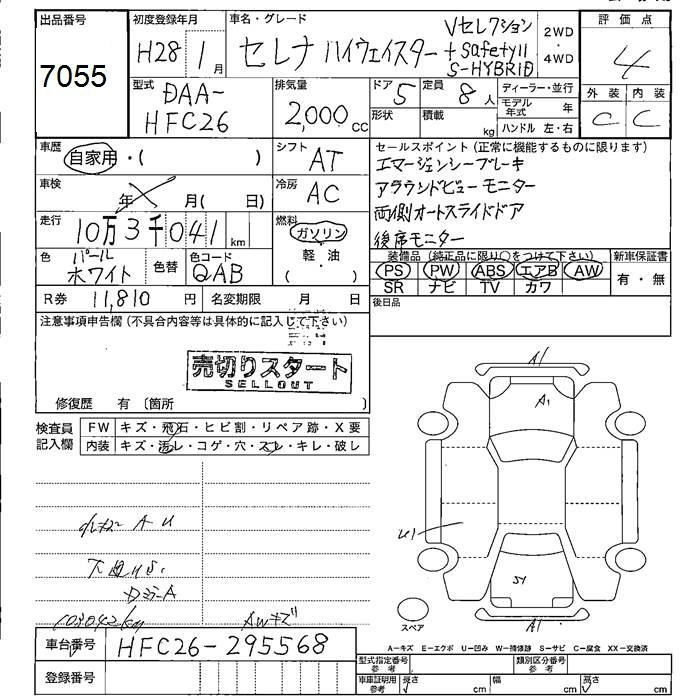 出品番号
7055
初度登録年月
H28 1月
車名・グレード
セレナ ハイウェイスター
Vセレクション
+safetyII
S-HYBRID
2WD
・
4WD
評価点
4
外装 内装
C C
型式
DAA-
HFC26
排気量
2,000cc
ドア 5
形状
定員 8人
積載 kg
ディーラー・並行
モデル年式 年
ハンドル 左・右
車歴
自家用・( )
シフト AT
車検
年 月(日)
冷房 AC
走行
10万3千041km
燃料
ガソリン
軽・油
( )
色 パール
ホワイト
色替
色コード
QAB
R券 11,810円
名変期限 月 日
セールスポイント(正常に機能するものに限ります)
エマージェンシーブレーキ
アラウンドビューモニター
両側オートスライドドア
後席モニター
装備品(純正品に限り○をつけて下さい)
PS PW ABS エアB AW
SR ナビ TV カワ
新車保証書
有・無
後日品
注意事項申告欄(不具合内容等は具体的に記入して下さい)
売切りスタート
SELLOUT
修復歴 有〔箇所 〕
検査員
記入欄
FW キズ・飛石・ヒビ割・リペア跡・X要
内装 キズ・汚レ・コゲ・穴・スレ・キレ・破レ
A U
A
103042km
AWキズ
A1
A1
U1
SY
A1
スペア
A-キズ E-エクボ U-凹み W-補修跡 S-サビ C-腐食 XX-交換済
車台番号
HFC26-295568
登録番号
型式指定番号
参考
類別区分番号
参考
車庫証明用
参考
長さ cm
幅 cm
高さ cm